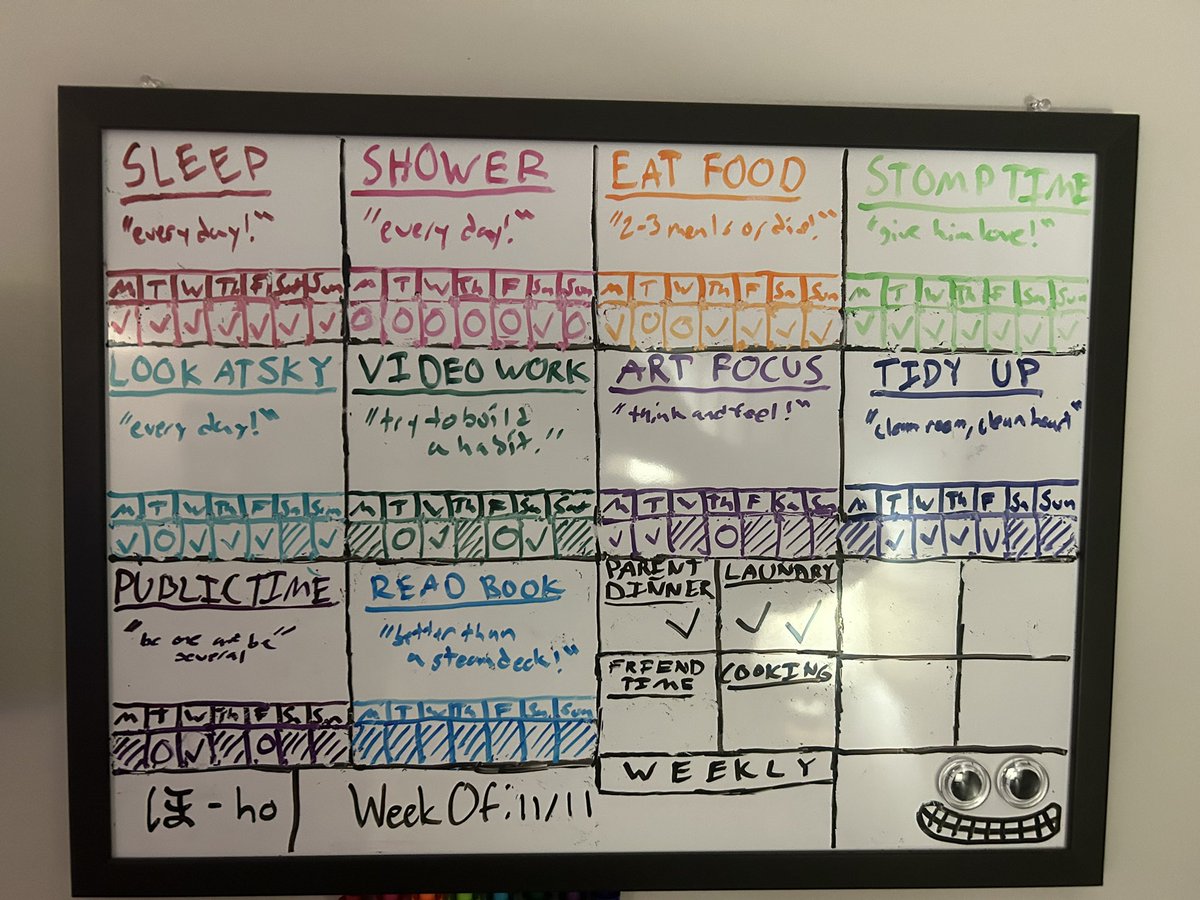 SLEEP
"every day!"
M T W Th F Sat Sun
SHOWER
"every day!"
M T W Th F Sa Sun
EAT FOOD
"2-3 meals or die!"
M T W Th F Sa Sun
STOMP TIME
"give him love!"
M T W Th F Sa Sun
LOOK AT SKY
"every day!"
M T W Th F Sa Sun
VIDEO WORK
"try to build
a habit."
M T W Th F Sa Sat
ART FOCUS
"think and feel!"
M T W Th F Sa Su
TIDY UP
"clean room, clean heart"
M T W Th F Sa Sun
PUBLIC TIME
"be one of
several"
M T W Th F Sa Sun
READ BOOK
"better than
a steam deck!"
M T W Th F Sa Sun
PARENT
DINNER
LAUNARY
FRIEND
TIME
COOKING
WEEKLY
ほ-ho
Week Of: 11/11